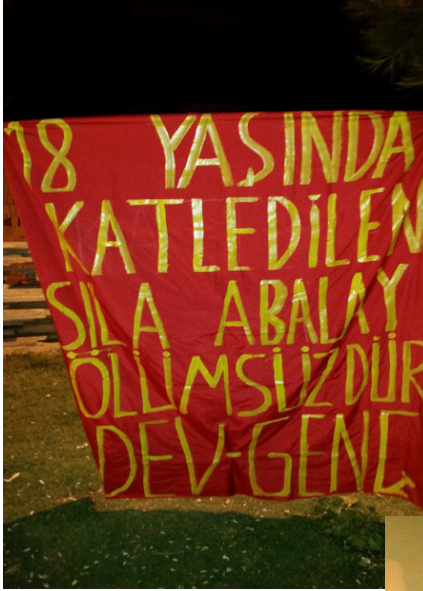 18 YAŞINDA
KATLEDİLEN
SILA ABALAY
ÖLÜMSÜZDÜR
DEV-GENÇ